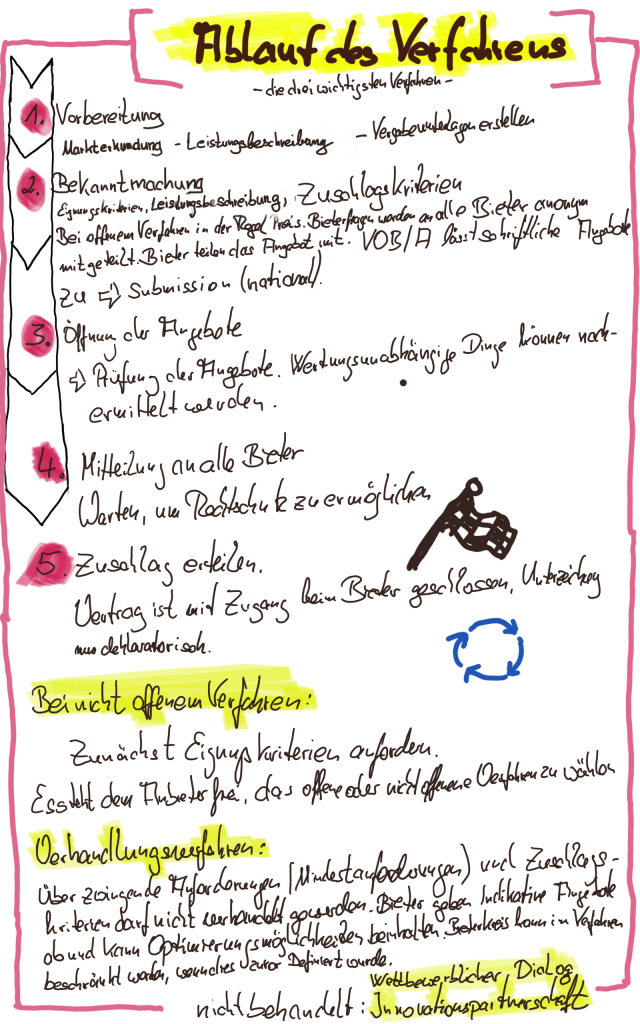 Ablauf des Verfahrens
- die drei wichtigsten Verfahren -
1. Vorbereitung
Markterkundung - Leistungsbeschreibung - Vergabeunterlagen erstellen
2. Bekanntmachung
Eignungskriterien, Leistungsbeschreibung, Zuschlagskriterien
Bei offenem Verfahren in der Regel Preis. Bieterfragen werden an alle Bieter anonym
mitgeteilt. Bieter teilen das Angebot mit. VOB/A lässt schriftliche Angebote
zu ⇨ Submission (national).
3. Öffnung der Angebote
⇨ Prüfung der Angebote. Wertungsunabhängige Dinge können nach-
ermittelt werden.
4. Mitteilung an alle Bieter
Warten, um Rechtschutz zu ermöglichen
5. Zuschlag erteilen.
Vertrag ist mit Zugang beim Bieter geschlossen, Unterzeichng
nur deklaratorisch.
Bei nicht offenem Verfahren:
Zunächst Eignungskriterien anfordern.
Es steht dem Anbieter frei, das offene oder nicht offenene Verfahren zu wählen
Verhandlungsverfahren:
Über zwingende Anforderungen (Mindestanforderungen) und Zuschlags-
kriterien darf nicht verhandelt werden. Bieter geben Indikative Angebote
ab und kann Optimierungsmöglichkeiten beinhalten. Bieterkreis kann im Verfahren
beschränkt werden, wenn dies zuvor Definiert wurde.
nicht behandelt: Wettbewerblicher Dialog,
Innovationspartnerschaft